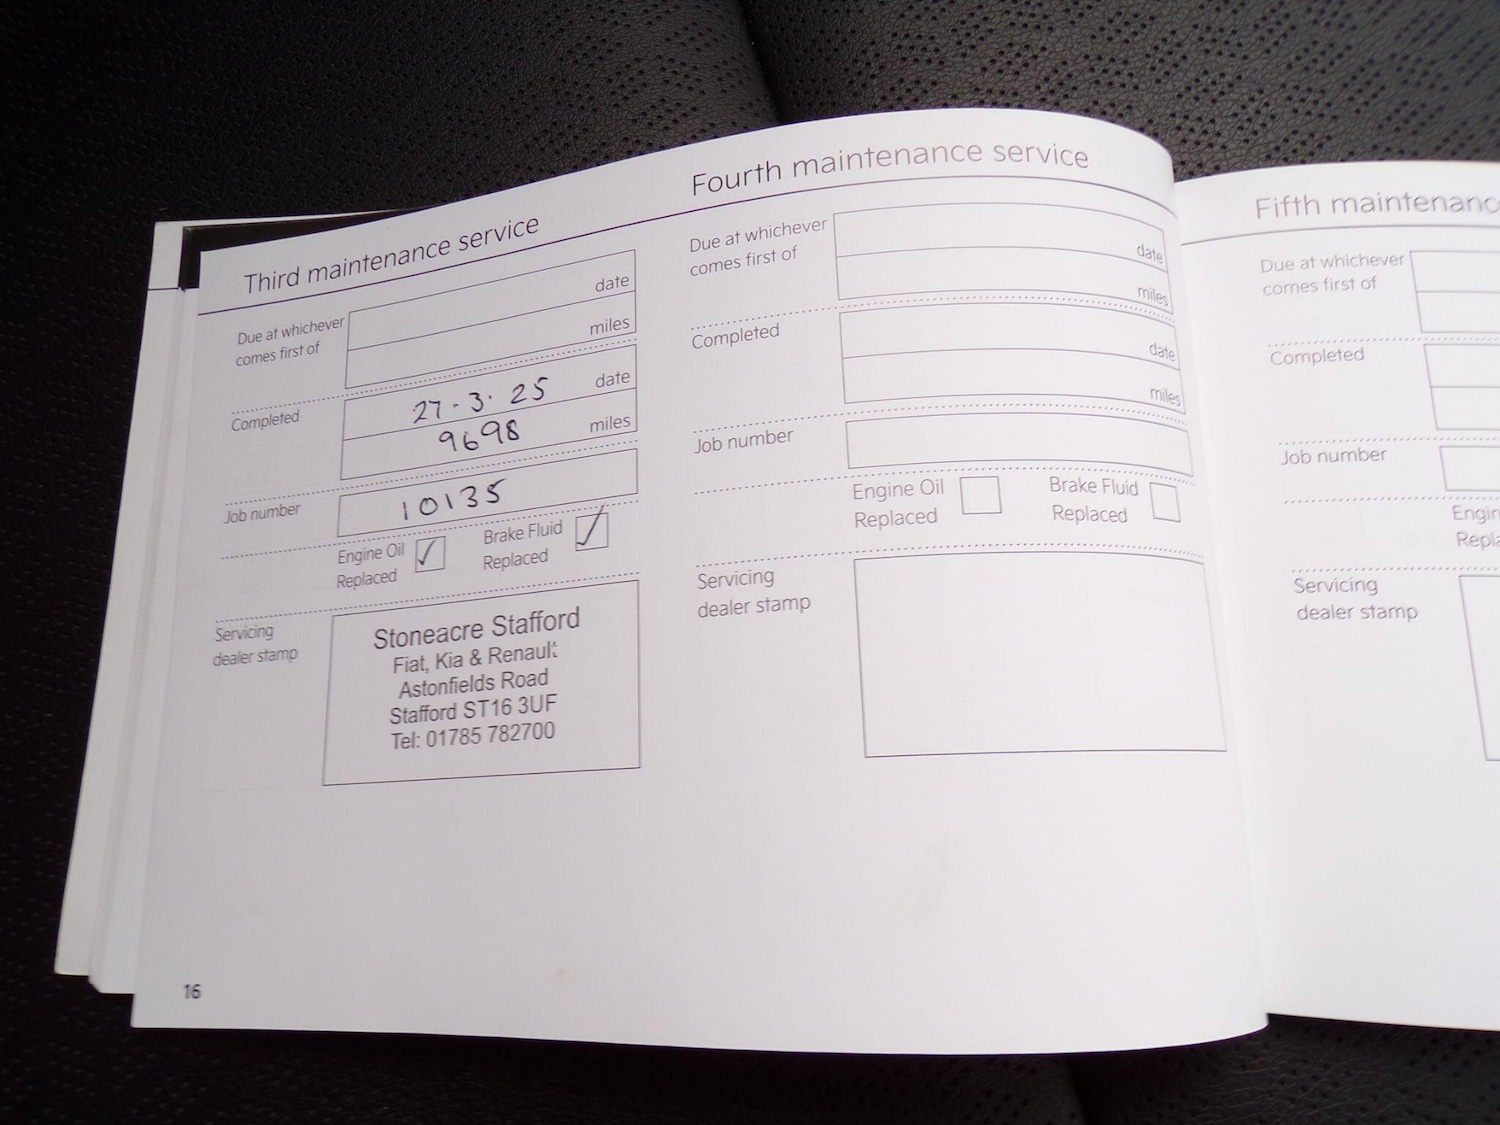 Third maintenance service
Due at whichever
comes first of
date
miles
Completed
27-3-25 date
9698 miles
Job number
10135
Engine Oil
Replaced
✓
Brake Fluid
Replaced
✓
Servicing
dealer stamp
Stoneacre Stafford
Fiat, Kia & Renault
Astonfields Road
Stafford ST16 3UF
Tel: 01785 782700
16
Fourth maintenance service
Due at whichever
comes first of
date
miles
Completed
date
miles
Job number
Engine Oil
Replaced
Brake Fluid
Replaced
Servicing
dealer stamp
Fifth
Due at whichever
comes first of
Completed
Job number
Servicing
dealer stamp